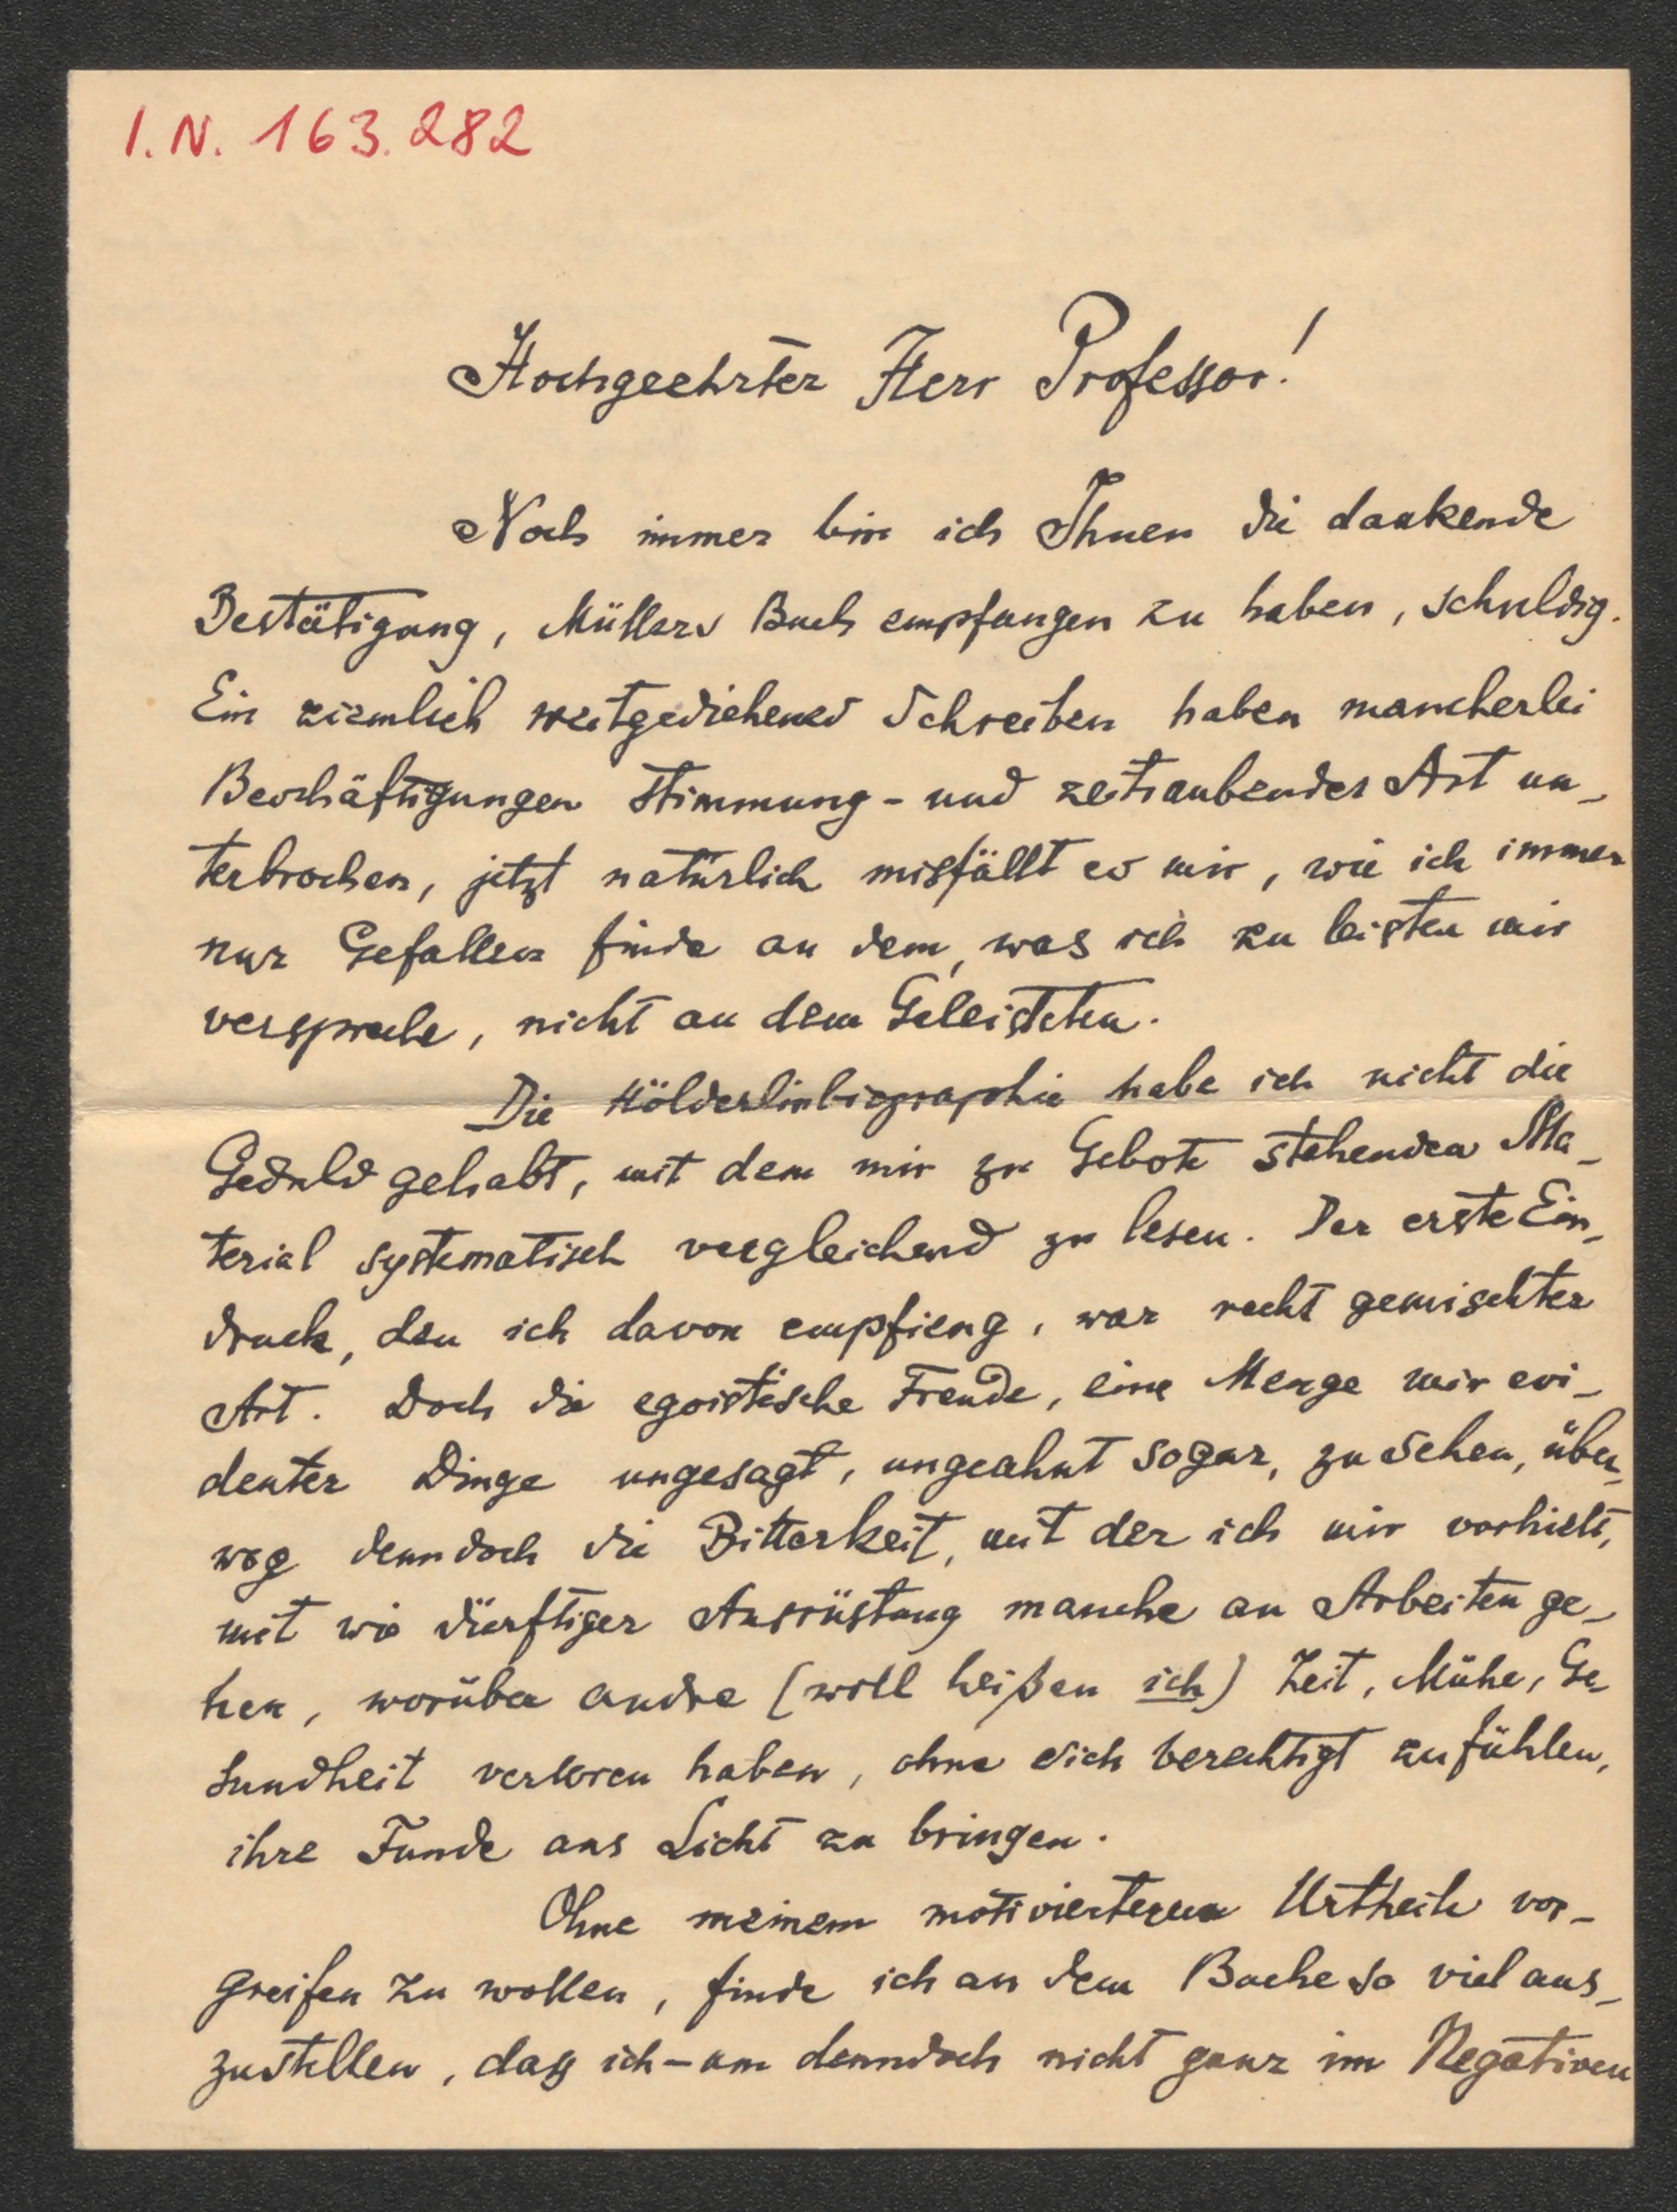 I.N. 163.282
Hochgeehrter Herr Professor!
Noch immer bin ich Ihnen die dankende
Bestätigung, Müllers Buch empfangen zu haben, schuldig.
Ein ziemlich weitgediehenes Schreiben haben mancherlei
Beschäftigungen stimmung- und zeitraubender Art un-
terbrochen, jetzt natürlich misfällt es mir, wie ich immer
nur Gefallen finde an dem, was ich zu leisten mir
verspreche, nicht an dem Geleisteten.
Die Hölderlinbiographie habe ich nicht die
Geduld gehabt, mit dem mir zu Gebote stehenden Ma-
terial systematisch vergleichend zu lesen. Der erste Ein-
druck, den ich davon empfieng, war recht gemischter
Art. Doch die egoistische Freude, eine Menge mir evi-
denter Dinge ungesagt, ungeahnt sogar, zu sehen, über-
wog denndoch die Bitterkeit, mit der ich mir vorhielt,
mit wie dürftiger Ausrüstung manche an Arbeiten ge-
hen, worüber andre (will heißen ich) Zeit, Mühe, Ge-
sundheit verloren haben, ohne sich berechtigt zu fühlen,
ihre Funde ans Licht zu bringen.
Ohne meinem motivierteren Urtheile vor-
greifen zu wollen, finde ich an dem Buche so viel aus-
zustellen, dass ich - um denndoch nicht ganz im Negativen